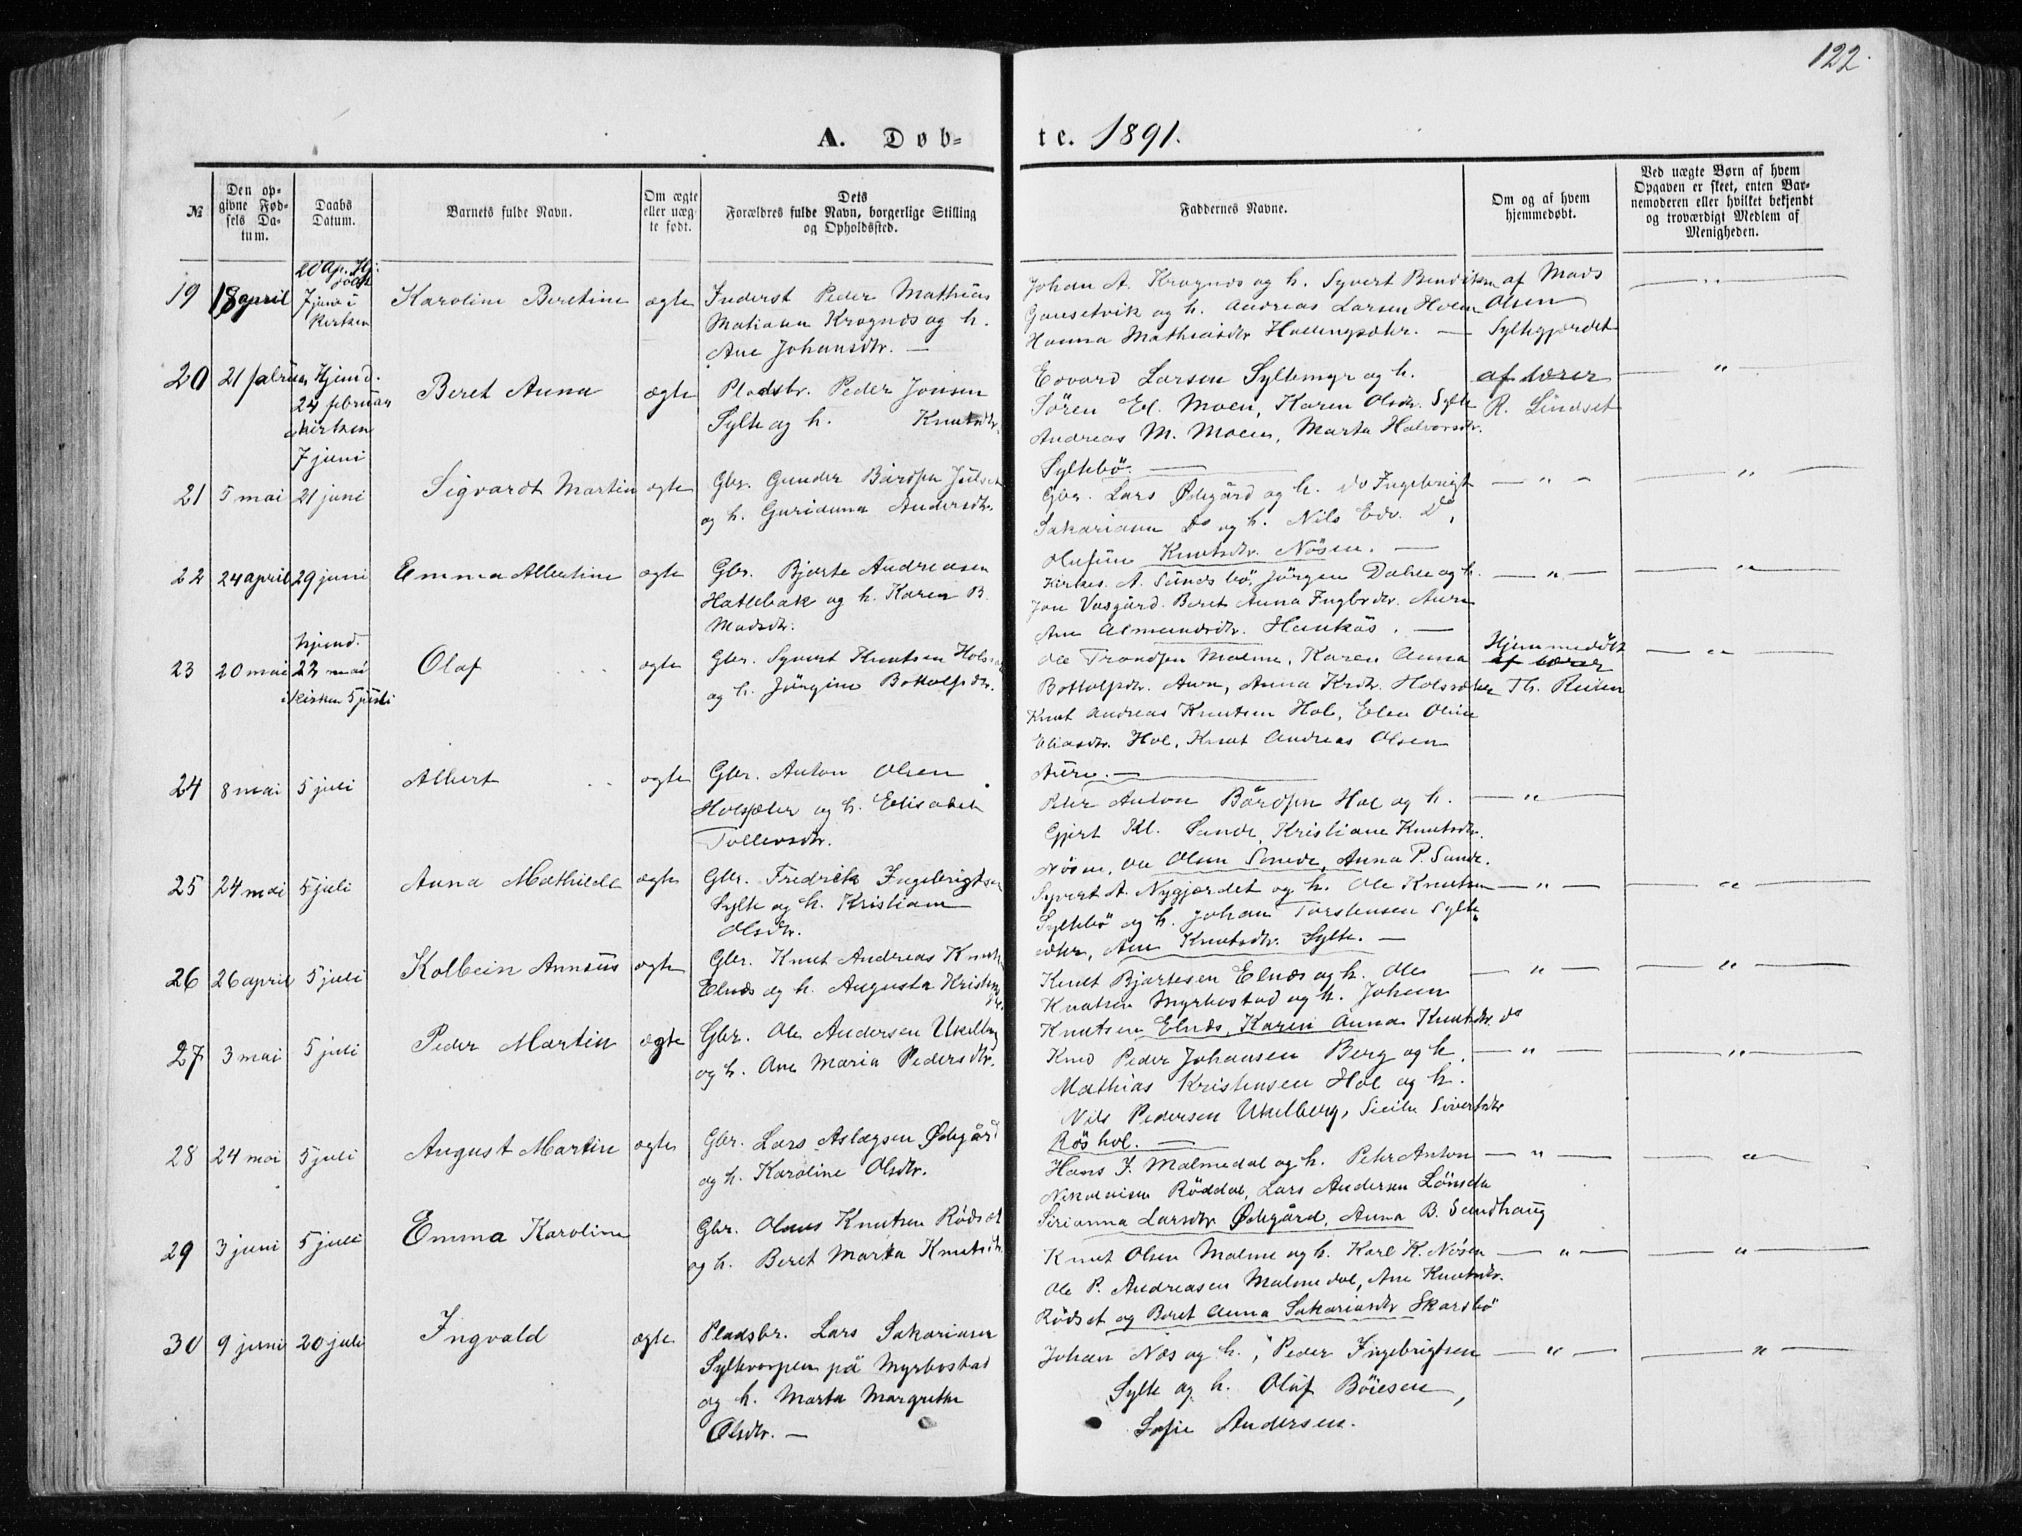 122.
A. Døb-
te. 1891.
№
Den op-
givne Fød-
sels Da-
tum.
Daabs
Datum.
Barnets fulde Navn.
Om ægte
eller uæg-
te født.
Dets
Forældres fulde Navn, borgerlige Stilling
og Opholdssted.
Faddernes Navne.
Om og af hvem
hjemmedøbt.
Ved uægte Børn af hvem
Opgaven er skeet, enten Bar-
nemoderen eller hvilket bekjendt
og troværdigt Medlem af
Menigheden.
19 18 april 20 Ap. Hj.
7 juni i
Kirken
Karoline Beretine ægte
Inderst Peder Mathias
Matiasen Kragnes og h.
Ane Johansdtr. —
Johan A. Kragnes og h. Syvert Bendiksen
Gausetvik og h. Andreas Larsen Holen
Hanna Mathiasdtr. —
af Mads
Olsen
Syltegjerdet
— " —
20 21 februar Hjemd.
24 februar
i kirken
7 juni
Beret Anna ægte
Pladsbr. Peder Jonsen
Sylte og h. Knutsdtr.
Edvard Larsen Syltemyr og h.
Søren El. Moen, Karen Olsdtr. Sylte
Andreas M. Moen, Marta Halvorsdtr.
Syltebø. —
af lærer
R. Lindset
— " —
21 5 mai 21 juni Sigvardt Martin ægte
Gbr. Gunder Bårdsen Julset
og h. Gurianna Andersdtr.
Gbr. Lars Ødegård og h. do Ingebrigt
Sakariasen Do og h. Nils Edv. Do,
Olufine Knutsdtr. Nøsen. —
— " —
— " —
22 24 april 29 juni Emma Albertine ægte
Gbr. Bjarte Andreasen
Hatlebak og h. Karen B.
Madsdtr.
Kirkes. A. Sundsbø, Jørgen Dahle og h.
Jon Vasgård. Beret Anna Ingbrdtr. Aure
Ane Almundsdtr. Haukås. —
— " —
— " —
23 20 mai
hjemd.
22 mai
i kirken 5 juli
Olaf ægte
Gbr. Syvert Knutsen
og h. Jørgine Bottolfsdtr.
Ole Trondsen Malme, Karen Anna
Bottolfsdtr. Aure, Anna Krdtr. Holsæter
Knut Andreas Knutsen Hol, Elen Oline
Eliasdtr. Hol, Knut Andreas Olsen
Aure. —
Hjemmedøbt
af lærer
Th. Reiten
— " —
24 8 mai 5 juli Albert ægte
Gbr. Anton Olsen
Holsæter og h. Elisabet
Tollevsdtr.
Anton Bårdsen Hol og h.
Gjert Kl. Sande, Kristiane Knutsdtr.
Nøsen, Ole Olsen Sande, Anna P. Sande.
— " —
25 24 mai 5 juli Anna Mathilde ægte
Gbr. Fredrik Ingebrigtsen
Sylte og h. Kristiane
Olsdtr.
Syvert A. Nygjerdet og h. Ole Knutsen
Syltebø og h. Johan Torstensen Sylte
Ane Knutsdtr. Sylte. —
— " —
— " —
26 26 april 5 juli Kolbein Annæus ægte
Gbr. Knut Andreas Knutsen
Elnes og h. Augusta
Knut Bjartesen Elnes og h. Ole
Knutsen Myrbostad og h. Johan
Knutsen Elnes, Karen Anna Knutsdtr. do
— " —
— " —
27 3 mai 5 juli Peder Martin ægte
Gbr. Ole Andersen Ukelberg
og h. Ane Maria Pedersdtr.
Peder Johansen Berg og h.
Mathias Kristensen Hol og h.
Nils Pedersen Ukelberg, Sicilie Sivertsdtr
Røshol. —
— " —
— " —
28 24 mai 5 juli August Martin ægte
Gbr. Lars Aslagsen Ødegård
og h. Karoline Olsdtr.
Hans J. Malmedal og h. Peter Anton
Nikolaisen Røddal, Lars Andersen Lønset
Sirianna Larsdtr. Ødegård, Anna B. Sandhaug
— " —
— " —
29 3 juni 5 juli Emma Karoline
Gbr. Olaus Knutsen Rødset
og h. Beret Marta Knutsdtr.
Knut Olsen Malme og h. Karl K. Nøsen
Ole P. Andreasen Malmedal, Ane Knutsdtr.
Rødset og Beret Anna Sakariasdtr Skarsbø
— " —
— " —
30 9 juni 20 juli Ingvald ægte
Pladsbr. Lars Sakariasen
Syltevorpen på Myrbostad
og h. Marta Margrethe
Olsdtr. —
Johan Næs og h., Peder Ingebrigtsen
Sylte og h. Oluf Böiesen,
Sofie Andersen.
— " —
— " —